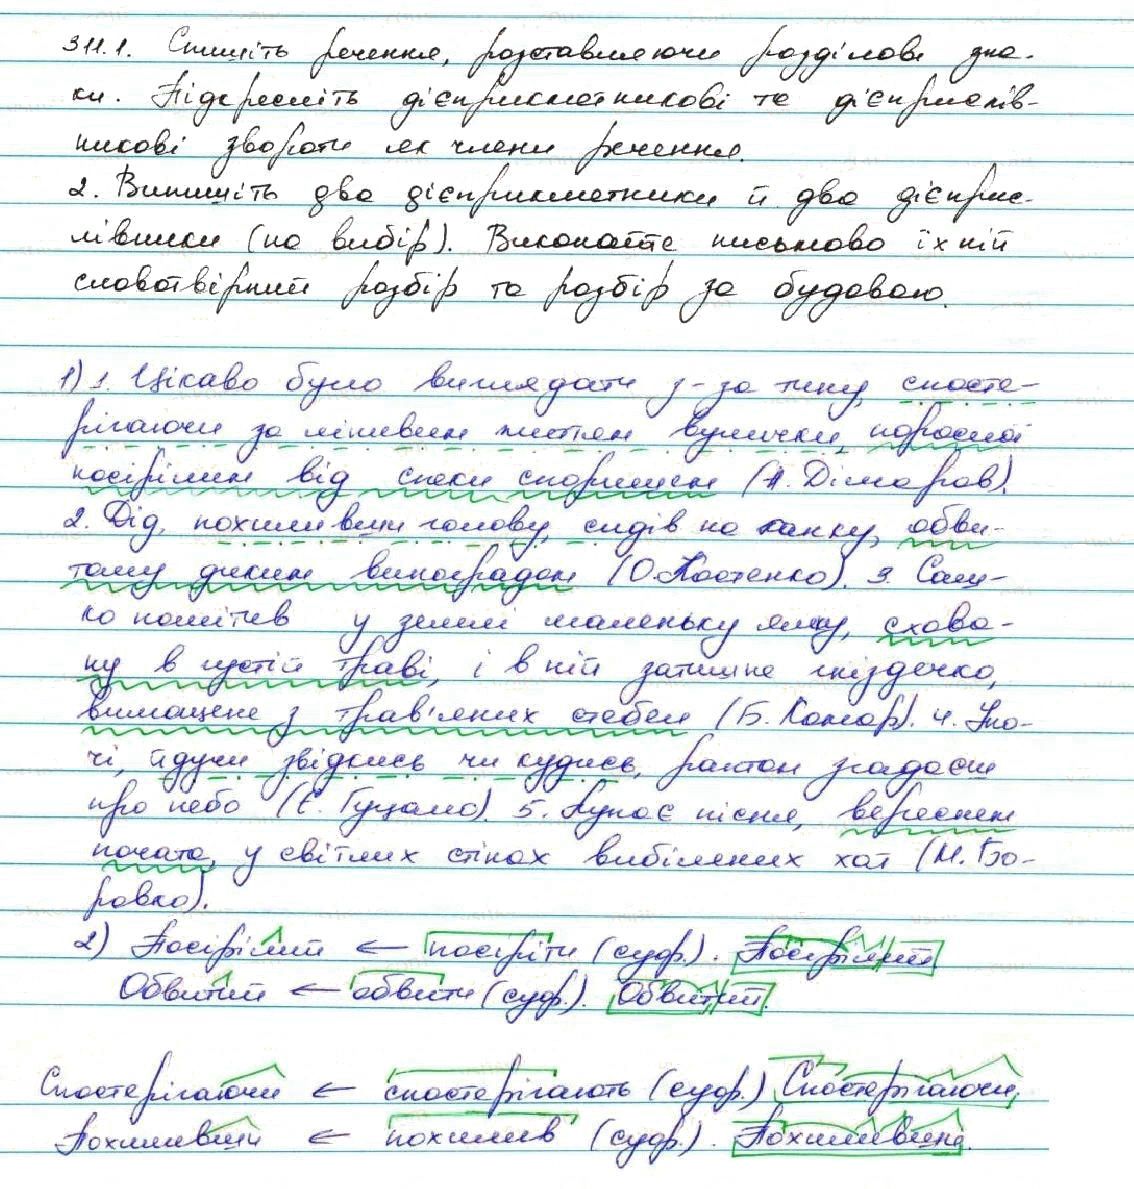 311.1. Спишіть речення, розставляючи розділові зна-
ки. Підкресліть дієприкметникові та дієприслів-
никові звороти як члени речення.
2. Випишіть два дієприкметники й два дієприс-
лівники (на вибір). Виконайте письмово їхній
словотвірний розбір та розбір за будовою.
1) 1. Цікаво було виглядати з-за тину, спосте-
рігаючи за лінивим життям вулички, порослої
посірілим від спеки споришем (А. Дімаров).
2. Дід, похиливши голову, сидів на ганку, обви-
тому диким виноградом (О. Костенко). 3. Саш-
ко помітив у землі маленьку ямку, схова-
ну в густій траві, і в ній затишне гніздечко,
вимощене з трав'яних стебел (Б. Комар). 4. Уно-
чі, йдучи звідкись чи кудись, раптом згадаєш
про небо (Є. Гуцало). 5. Лунає пісня, вереснем
почата, у світлих стінах вибілених хат (М. Бо-
ровко).
2) Посірілий ← посіріти (суф.). Посірілий
Обвитий ← обвити (суф.). Обвитий.
Спостерігаючи ← спостерігають (суф.) Спостерігаючи,
Похиливши ← похилив (суф.). Похиливши.